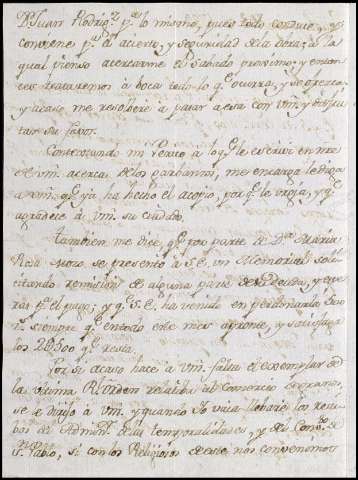 Dn Juan Rodrigz pa lo mismo, pues todo conduce, y es
conveniene pa el acierto, y seguridad dela dera; a la
qual pienso acercarme el Sabado proximo, y enton
ces trataremos à boca todo lo qe ocurra, y se ofrezca
y acaso me resolveré a pasar a esa con Vm. y disfru
tar su favor.
Contextando mi a lo qe le escrivi en nre
de Vm. acerca de los garbanzos, me encarga le diga
a Vm. qe ya ha hecho el acopio, por qe le urgia, y qe
agradece à Vm. su cuidado.
Tambien me dice, qe por parte de Da Maria
Rosa Moro se presentó à S.E. un Memorial soli
citando remision de alguna parte de su deuda, y espe
ras pa el pago; y qe S.E. ha venido en perdonarla 500
rs siempre qe en todo este mes apronte, y satisfaga
los 20500 qe resta.
Por si acaso hace a Vm. falta el exemplar de
la ultima Rl orden relativa al Comercio de granos,
se le dirijo à Vm. y quando Yo vaia llebaré los reci
bos de Admon. de las temporalidades, y del Convto de
Sn Pablo, si con los Religiosos de este nos convenimos